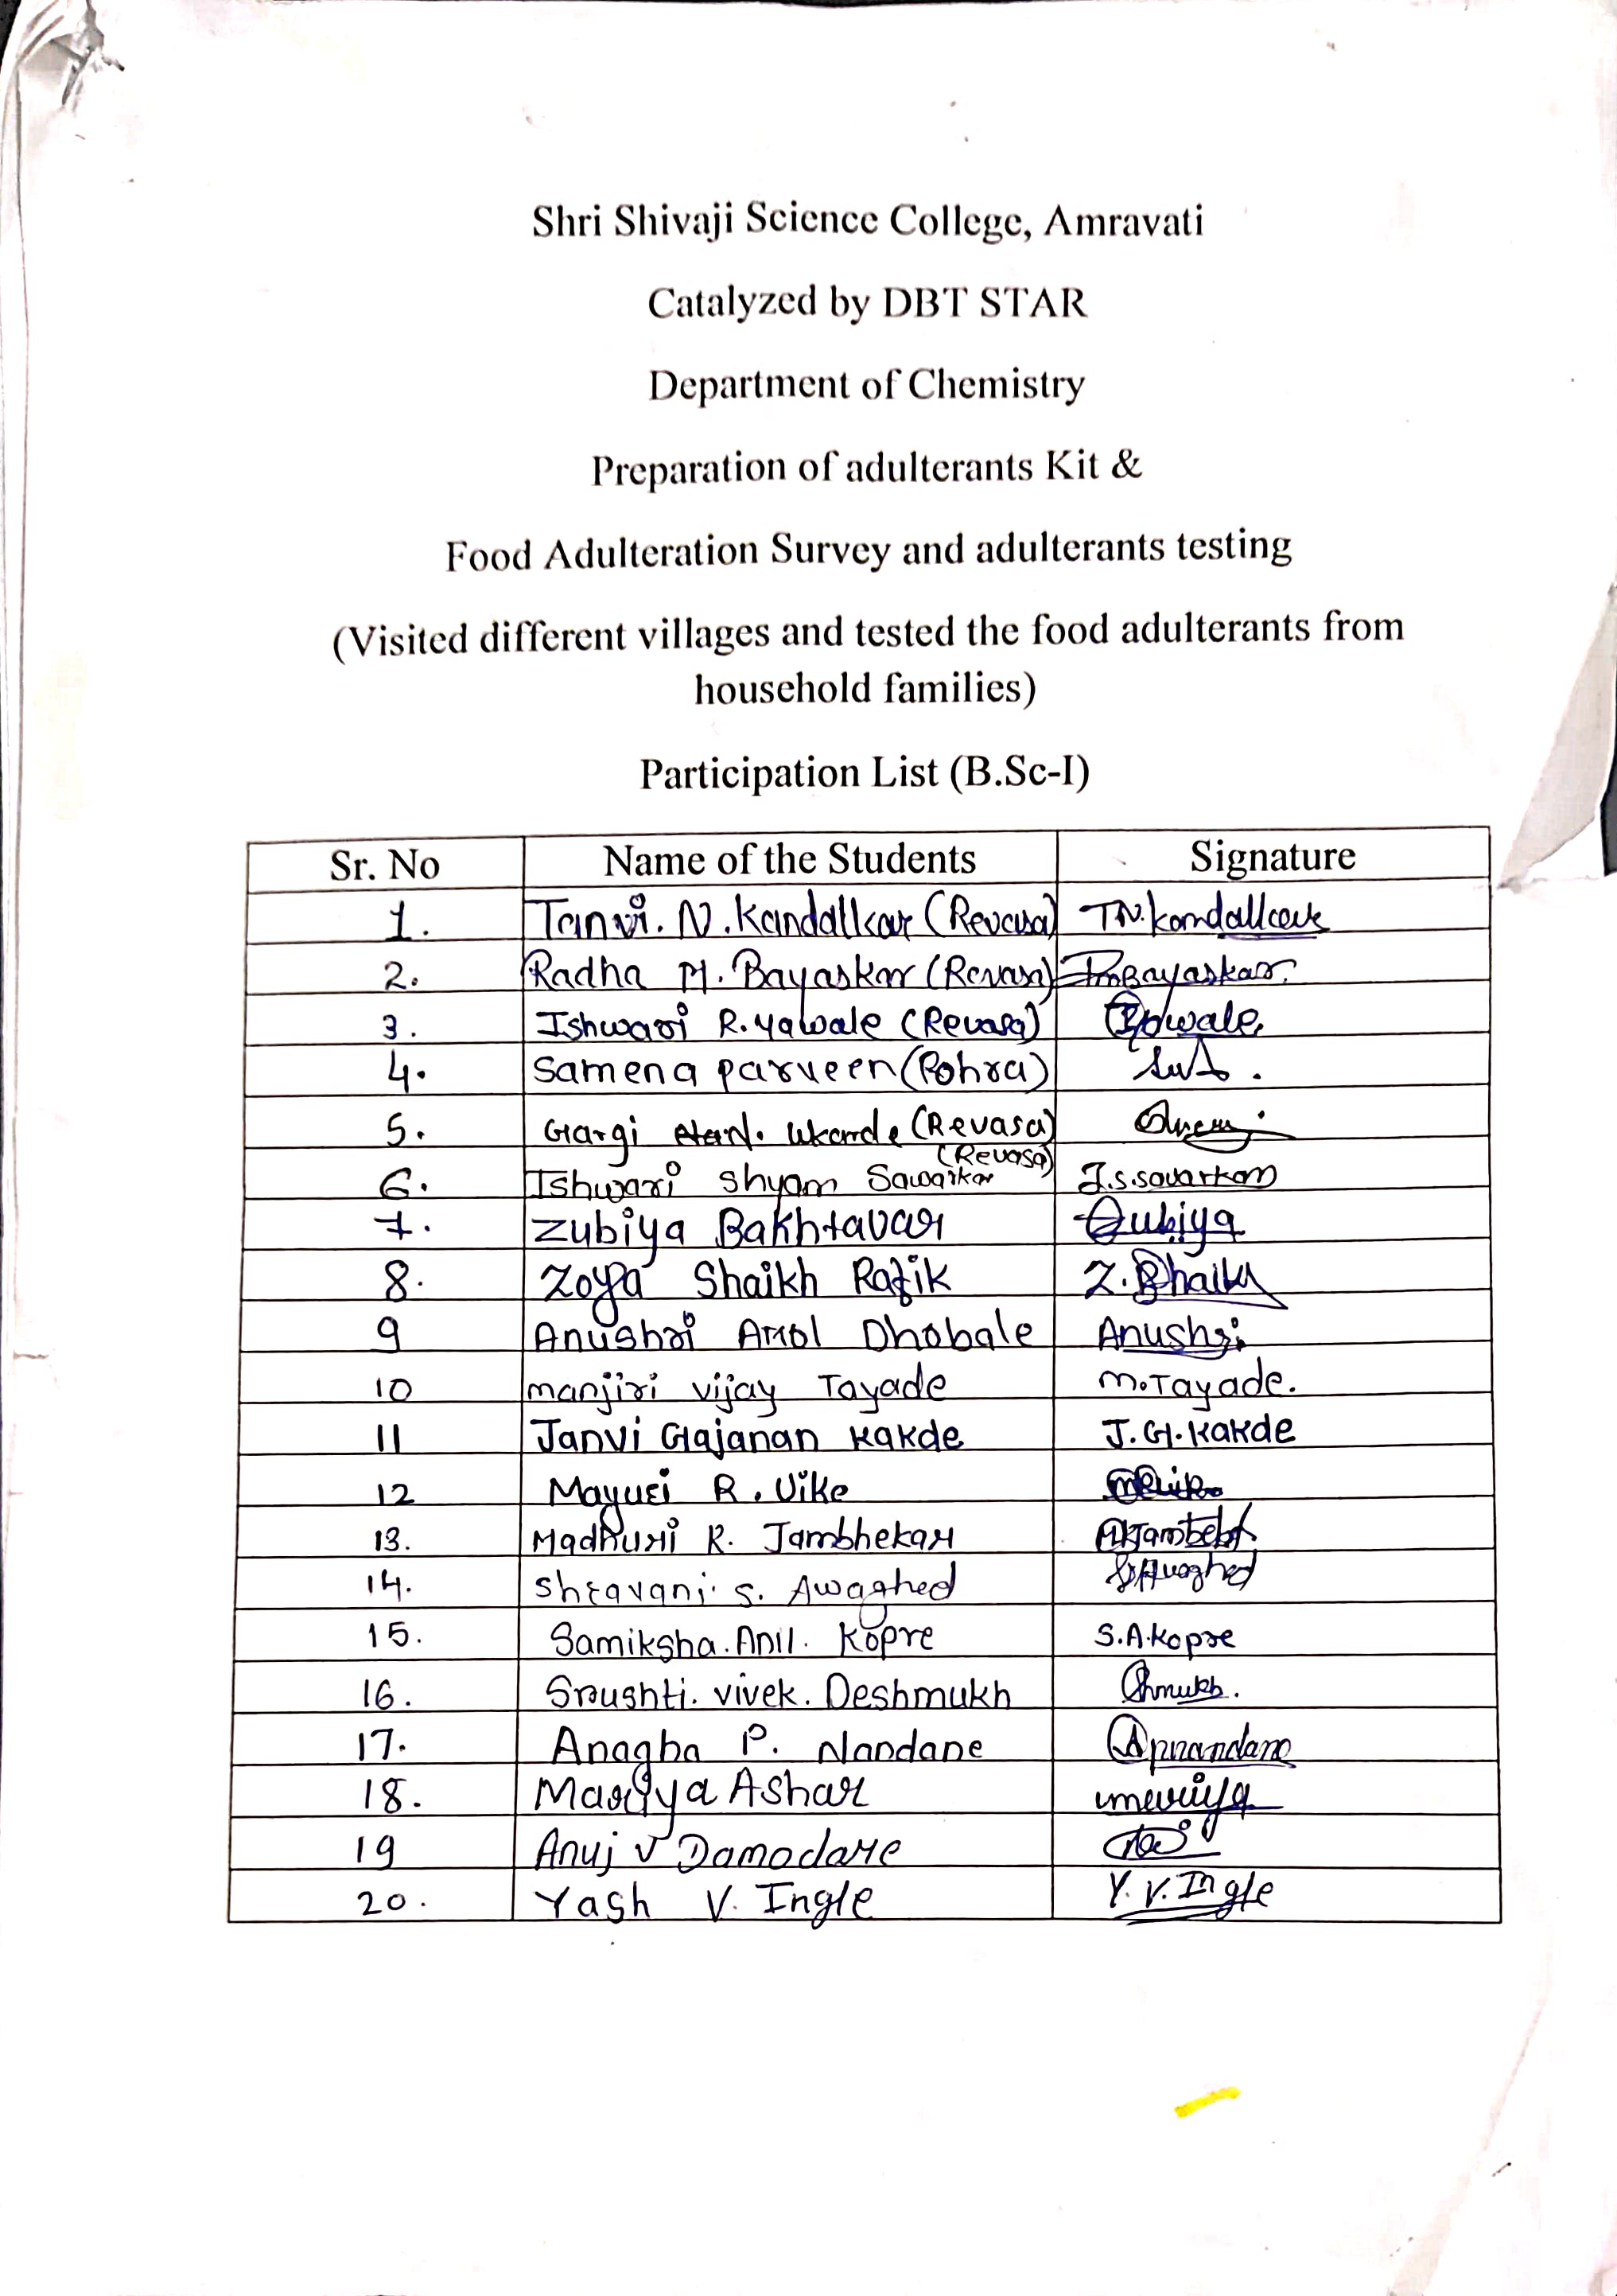 Shri Shivaji Science College, Amravati
Catalyzed by DBT STAR
Department of Chemistry
Preparation of adulterants Kit &
Food Adulteration Survey and adulterants testing
(Visited different villages and tested the food adulterants from
household families)
Participation List (B.Sc-I)
Sr. No Name of the Students Signature
1. Tanvi. N. Kandalkar (Revasa) T.N. Kandalkar
2. Radha M. Bayaskar (Revasa) Bayaskar.
3. Ishwari R. Yawale (Revasa)
4. Samena parveen (Pohra)
5. Gargi (Revasa)
6. Ishwari Shyam Sawarkar (Revasa) I.S. Savarkar
7. Zubiya Bakhtavar Zubiya
8. Zoya Shaikh Rafik Z. Shaikh
9 Anushri Amol Dhobale Anushri
10 manjiri vijay Tayade M. Tayade.
11 Janvi Gajanan Kakde J. G. Kakde
12 Mayuri R. Uike
13. Madhuri R. Jambhekar
14. Shravani S. Awaghed
15. Samiksha. Anil. Kopre S.A. Kopre
16. Srushti. vivek. Deshmukh
17. Anagha P. Nandane
18. Mariya Ashar
19 Anuj V Damodare
20. Yash V. Ingle Y. V. Ingle